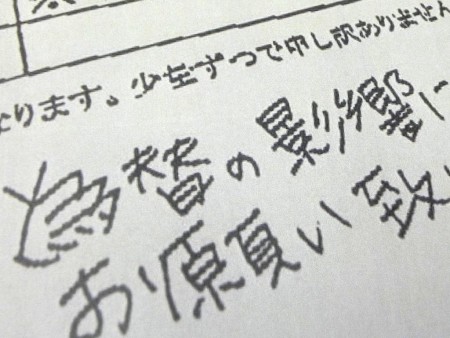 なります。少量ずつで申し訳ありません
為替の影響に
お願い致